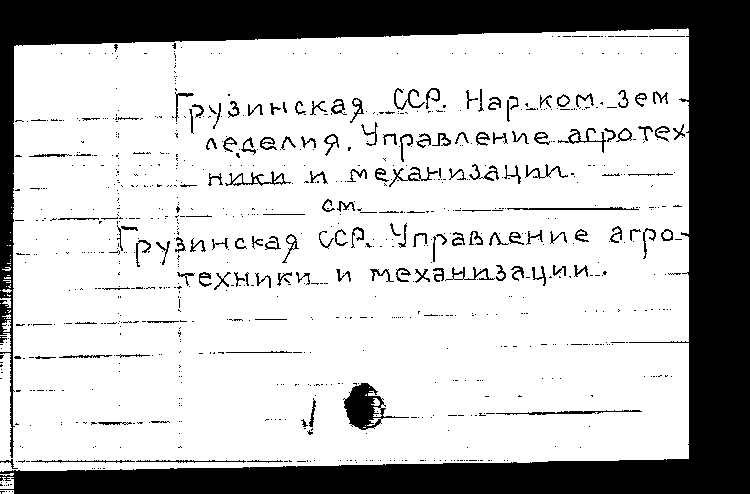 Грузинская ССР. Нар. ком. зем-
леделия. Управление агротех-
ники и механизации.
см.
Грузинская ССР. Управление агро-
техники и механизации.